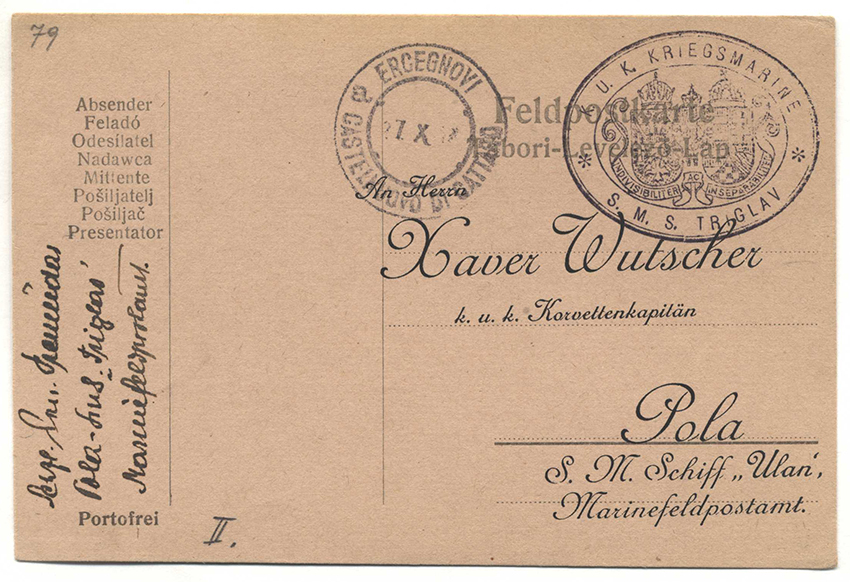 79
Absender
Feladó
Odesílatel
Nadawca
Mittente
Pošiljatelj
Pošiljač
Presentator
Portofrei
II.
ERCEGNOVI
CASTELNUOVO DI CATTARO
X
Feldpostkarte
Tábori-Levelező-Lap
K. U. K. KRIEGSMARINE
INDIVISIBILITER AC INSEPARABILITER
* S. M. S. TRIGLAV *
An Herrn
Xaver Wutscher
k. u. k. Korvettenkapitän
Pola
S. M. Schiff „Ulan‘,
Marinefeldpostamt.
Pola
Marinefeldpostamt.